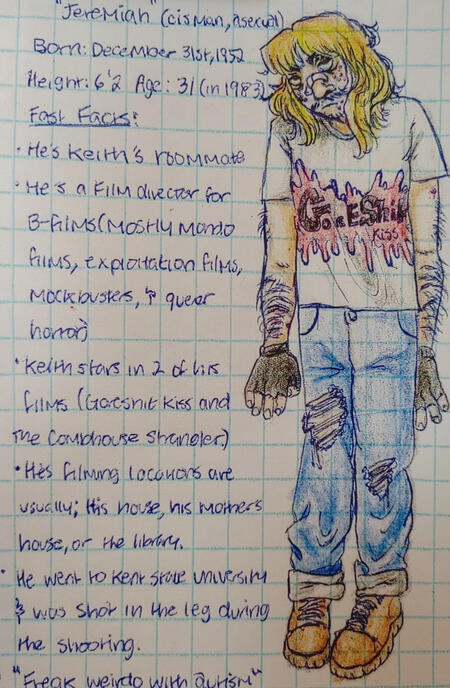 "Jeremiah" (cisman, asexual)
Born: December 31st, 1952
Height: 6'2 Age: 31 (in 1983)
Fast Facts:
• He's Keith's roommate
• He's a Film director for
B-films (Mostly Mondo
films, exploitation films,
Mockbusters, & queer
horror)
• Keith stars in 2 of his
films (Goreshit Kiss and
The Combhouse Strangler)
• His filming locations are
usually; His house, his mother's
house, or the library.
• He went to Kent State University
& was shot in the leg during
the shooting.
• "Freak weirdo with autism"
GOREShit
KISS